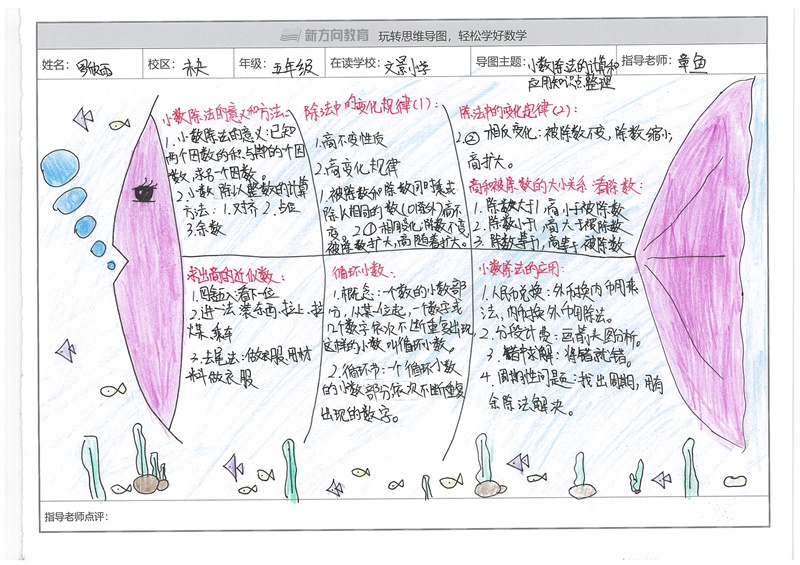 新方向教育 玩转思维导图，轻松学好数学
姓名： 校区：未央 年级：五年级 在读学校：文景小学 导图主题：小数除法的计算和 指导老师：章鱼
应用知识点整理
小数除法的意义和方法：
1.小数除法的意义：已知
两个因数的积与其中的一个因
数，求另一个因数。
2.小数除以整数的计算
方法：1.对齐 2.占位
3.余数
除法中的变化规律(1)：
1.商不变性质
2.商变化规律
1.被除数和除数同时乘或
除以相同的数(0除外)商不
变 2.①相同变化：除数不变
被除数扩大，商随着扩大。
除法中的变化规律(2)：
2.②相反变化：被除数不变，除数缩小，
商扩大。
商和被除数的大小关系看除数：
1.除数大于1，商小于被除数
2.除数小于1，商大于被除数
3.除数等于1，商等于被除数
求出商的近似数：
1.四舍五入看下一位
2.进一法：装东西，拉土，拉
煤，乘车
3.去尾法：做衣服，用材
料做衣服
循环小数：
1.概念：一个数的小数部
分，从某一位起，一个数字或
几个数字依次不断重复出现，
这样的小数叫循环小数。
2.循环节：一个循环小数
的小数部分依次不断重复
出现的数字。
小数除法的应用：
1.人民币兑换：外币换内币用乘
法，内币换外币用除法。
2.分段计费：画箭头图分析。
3.错中求解：将错就错。
4.周期性问题：找出周期，用有
余除法解决。
指导老师点评：